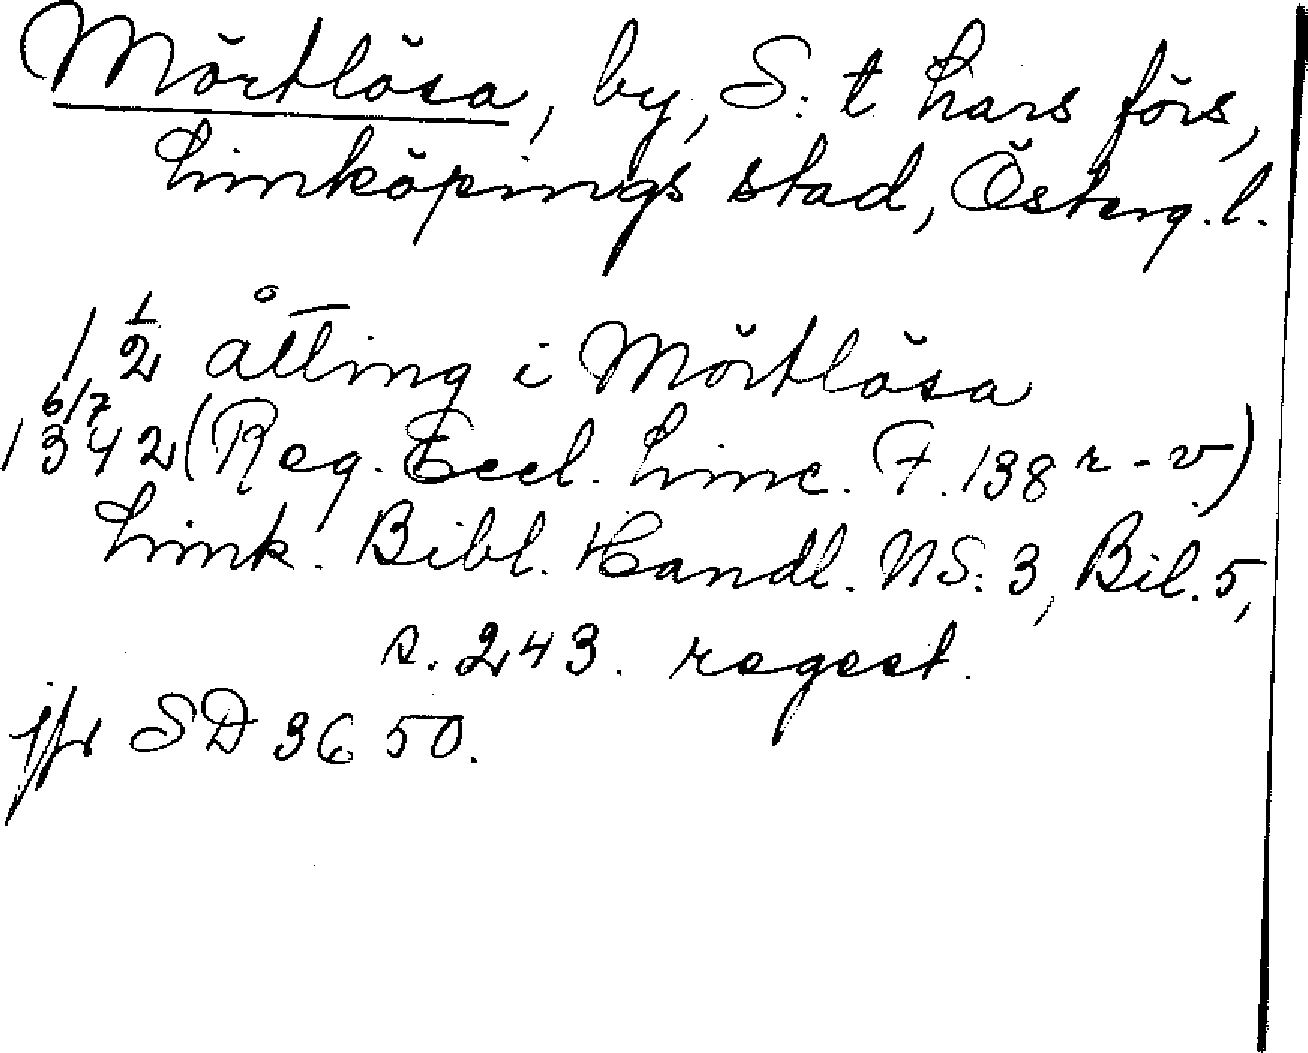 Mörtlösa, by, S:t Lars förs,
Linköpings stad, Österg. l.
1 1/2 åtting i Mörtlösa
6/7
1342 (Reg. Eccl. Linc. F. 138 r-v)
Link. Bibl. Handl. NS: 3, Bil. 5,
s. 243. regest.
jfr SD 3650.